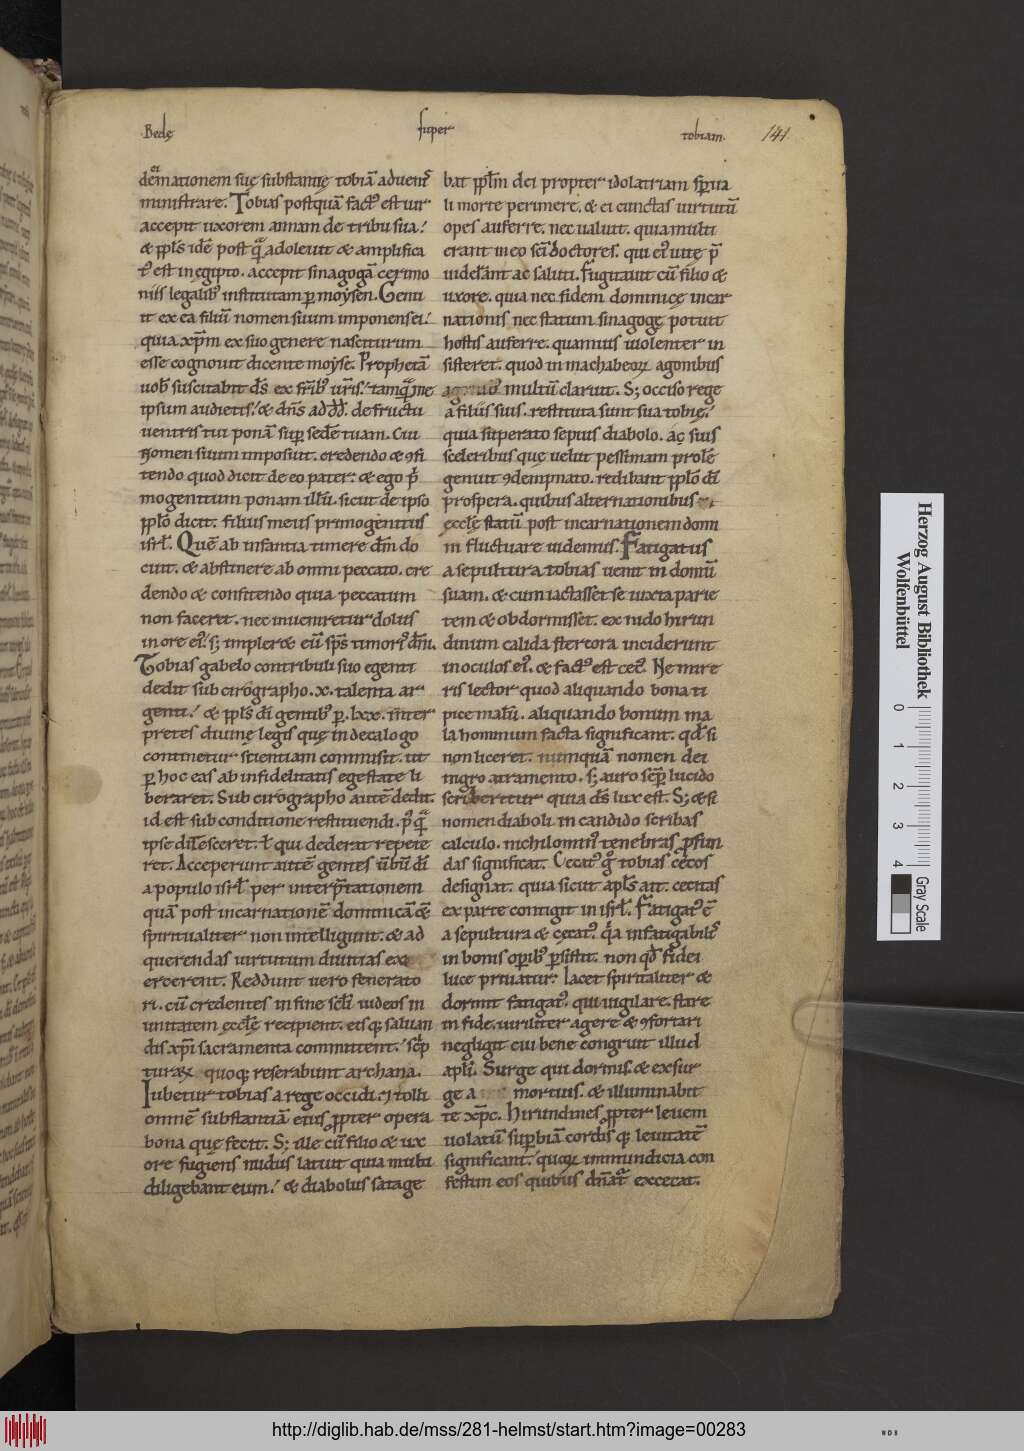 Bedę super tobiam. 141
dem̄ationem suę substantię tobiā advenī
ministrare. Tobias postquā fact⁹ est vir
accepit uxorem annam de tribu sua.
& ppl̄s idē post q̄ adolevit & amplifica
t⁹ est in egipto. accepit sinagogā cerimo
niis legalib⁹ institutam p̄ moysen. Genu
it ex ea filiū nomen suum imponens ei.
quia xp̄m ex suo genere nasciturum
esse cognovit dicente moyse. Prophetā
vob̄ suscitabit d̄s ex fr̄ib⁹ vr̄is. tamq̄ me
ipsum audietis. & dn̄s ad dd̄. de fructu
ventris tui ponā sup̄ sedē tuam. Cui
nomen suum imposuit. credendo & ꝯfi
tendo quod dicit de eo pater. & ego p̄
mogenitum ponam illū. sicut de ipso
pplo dicit. filius meus primogenitus
isrl̄. Quē ab infantia timere dm̄ do
cuit. & abstinere ab omni peccato. cre
dendo & confitendo quia peccatum
non faceret. nec inveniretur dolus
in ore ei⁹. s; implere & eū sp̄s timor⁹ dn̄i.
Tobias gabelo contribuli suo egenti
dedit sub cirographo .x. talenta ar
genti. & ppl̄s di gentib⁹ p̄ .lxx. inter
pretes divinę legis quę in decalogo
continetur scientiam commisit. ut
p̄ hoc eas ab infidelitatis egestate li
beraret. Sub cirographo autē dedit.
id est sub conditione restituendi. p⁹ q̄
ipse ditesceret. ł qui dederat repete
ret. Acceperunt autē gentes v̄bū di
a populo isrl̄ per interp̄tationem
quā post incarnationē dominicā &
spiritualiter non intelligunt. & ad
querendas virtutum divitias ex
ercerent. Reddunt vero fenerato
ri. cū credentes in fine scl̄i iudeos in
unitatem eccl̄ę recipient. eisq; salvan
dis xp̄i sacramenta committent. scp̄
turarꝝ quoq; reserabunt archana.
Iubetur tobias a rege occidi. ⁊ tolli
omnē substantiā eius p̄pter opera
bona quę fecit. S; ille cū filio & ux
ore fugiens nudus latuit quia multi
diligebant eum. & diabolus satage
bat ppl̄m dei propter idolatriam sp̄ua
li morte perimere. & ei cunctas virtutū
opes auferre. nec valuit. quia multi
erant in eo sc̄i doctores. qui et⁹ vitę p̄
viderant ac saluti. Fugitavit cū filio &
uxore. quia nec fidem dominicę incar
nationis nec statum sinagogę potuit
hostis auferre. quamvis violenter in
sisteret. quod in machabeorꝝ agonibus
multū claruit. S; occiso rege
a filiis suis. restituta sunt sua tobię.
quia superato sepius diabolo. ac suis
sceleribus quę velut pessimam prolē
genuit ꝯdempnato. redibant pplo di
prospera. quibus alternationibus
eccl̄ę statū post incarnationem domi
ni fluctuare videmus. Fatigatus
a sepultura tobias venit in domū
suam. & cum iactasset se iuxta parie
tem & obdormisset. ex nido hirun
dinum calida stercora inciderunt
in oculos ei⁹. & fact⁹ est cec⁹. Ne mire
ris lector quod aliquando bona ti
pice malū. aliquando bonum ma
la hominum facta significant. qd̄ si
non liceret. numquā nomen dei
nigro atramento. s; auro sēp̄ lucido
scriberetur quia ds̄ lux est. S; & si
nomen diaboli in candido scribas
calculo. nichilomin⁹ tenebras p̄fun
das significat. Cecat⁹ g̊ tobias cecos
designat. quia sicut apl̄s ait. cecitas
ex parte contigit in isrl̄. Fatigat⁹ ē
a sepultura & cecat⁹. q̄a infatigabilit̄
in bonis op̄ib⁹ p̄sistit. non qd̄ fidei
luce privatur. Iacet spiritaliter &
dormit fatigat⁹. qui vigilare. stare
in fide. viriliter agere & ꝯfortari
negligit cui bene congruit illud
apl̄i. Surge qui dormis. & exsur
ge a mortuis. & illuminabit
te xp̄c. Hirundines p̄pter levem
volatū sup̄biā cordis q; levitatē
significant. quoꝝ immundicia con
festim eos quibus dn̄at̄ excecat.
Herzog August Bibliothek
Wolfenbüttel
0 1 2 3 4
Gray Scale
http://diglib.hab.de/mss/281-helmst/start.htm?image=00283